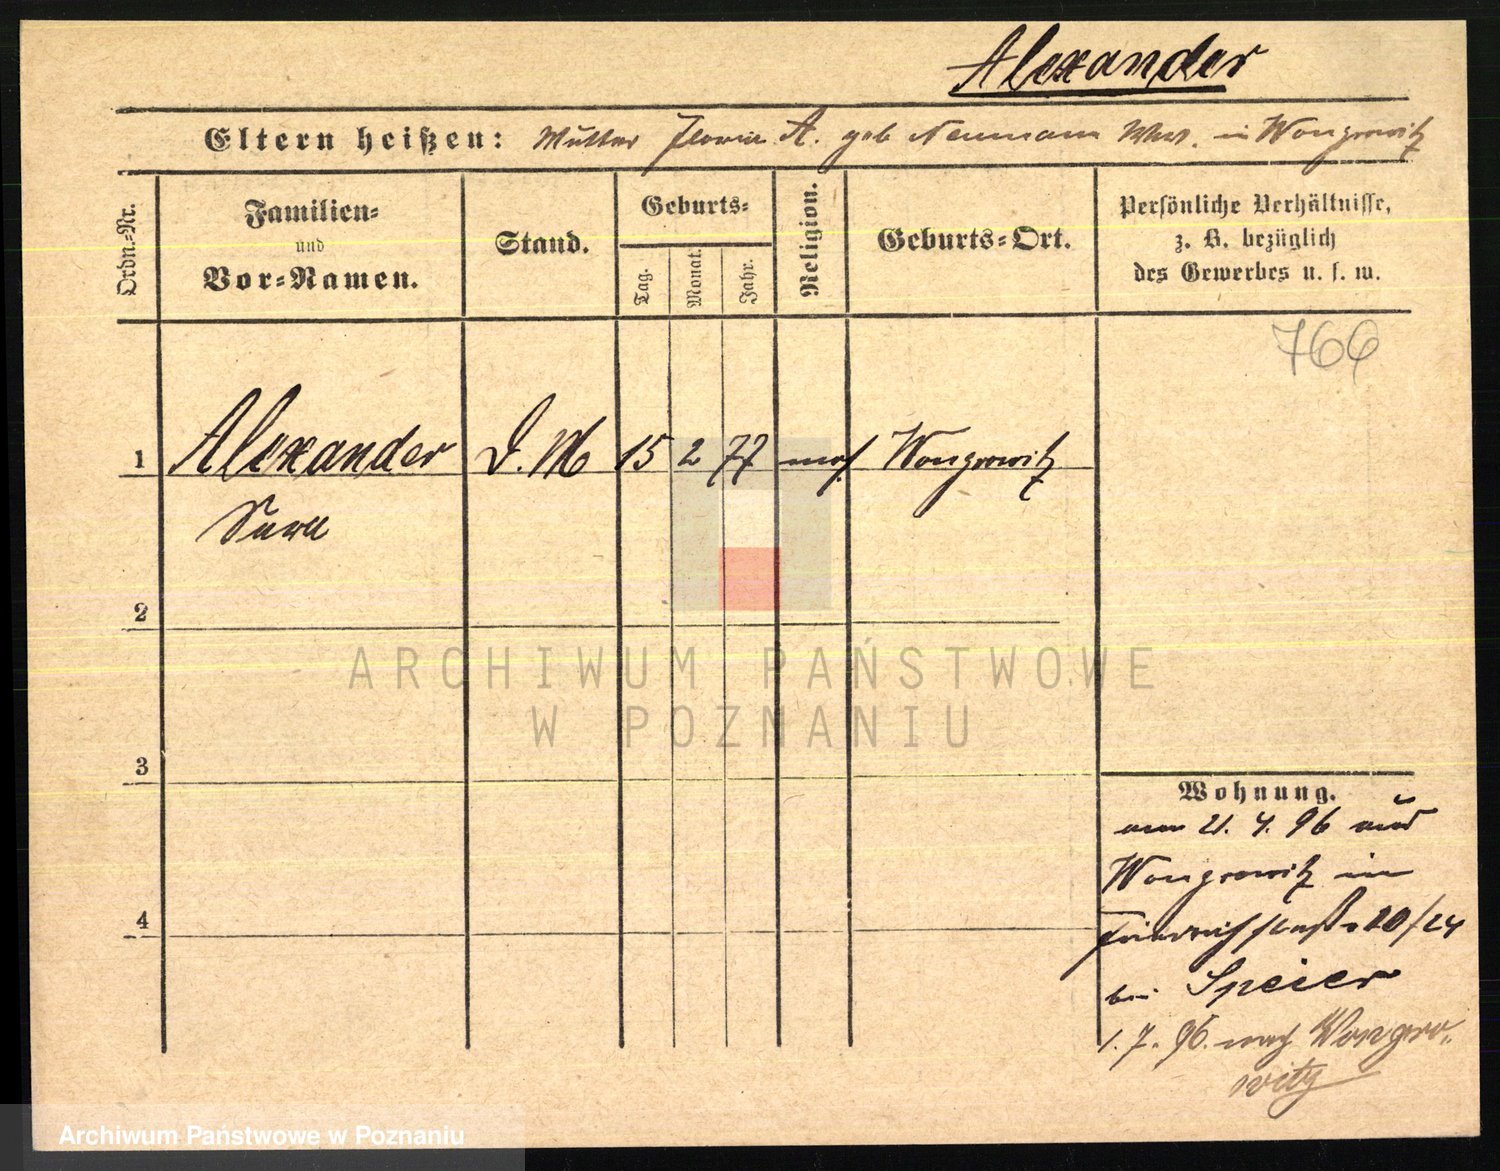 Alexander
Eltern heißen: Mutter Florine A. geb Neumann Wwe. in Wongrowitz
Ordn.-Nr.
Familien-
und
Vor-Namen.
Stand.
Geburts-
Tag.
Monat.
Jahr.
Religion.
Geburts-Ort.
Persönliche Verhältnisse,
z. B. bezüglich
des Gewerbes u. s. w.
766
1 Alexander D. M 15 2 77 mos. Wongrowitz
2
3
4
ARCHIWUM PAŃSTWOWE
W POZNANIU
Wohnung.
am 21. 4. 96 aus
Wongrowitz in
Friedrichstraße 20/24
bei Speier
1. 7. 96. nach Wongro-
witz
Archiwum Państwowe w Poznaniu